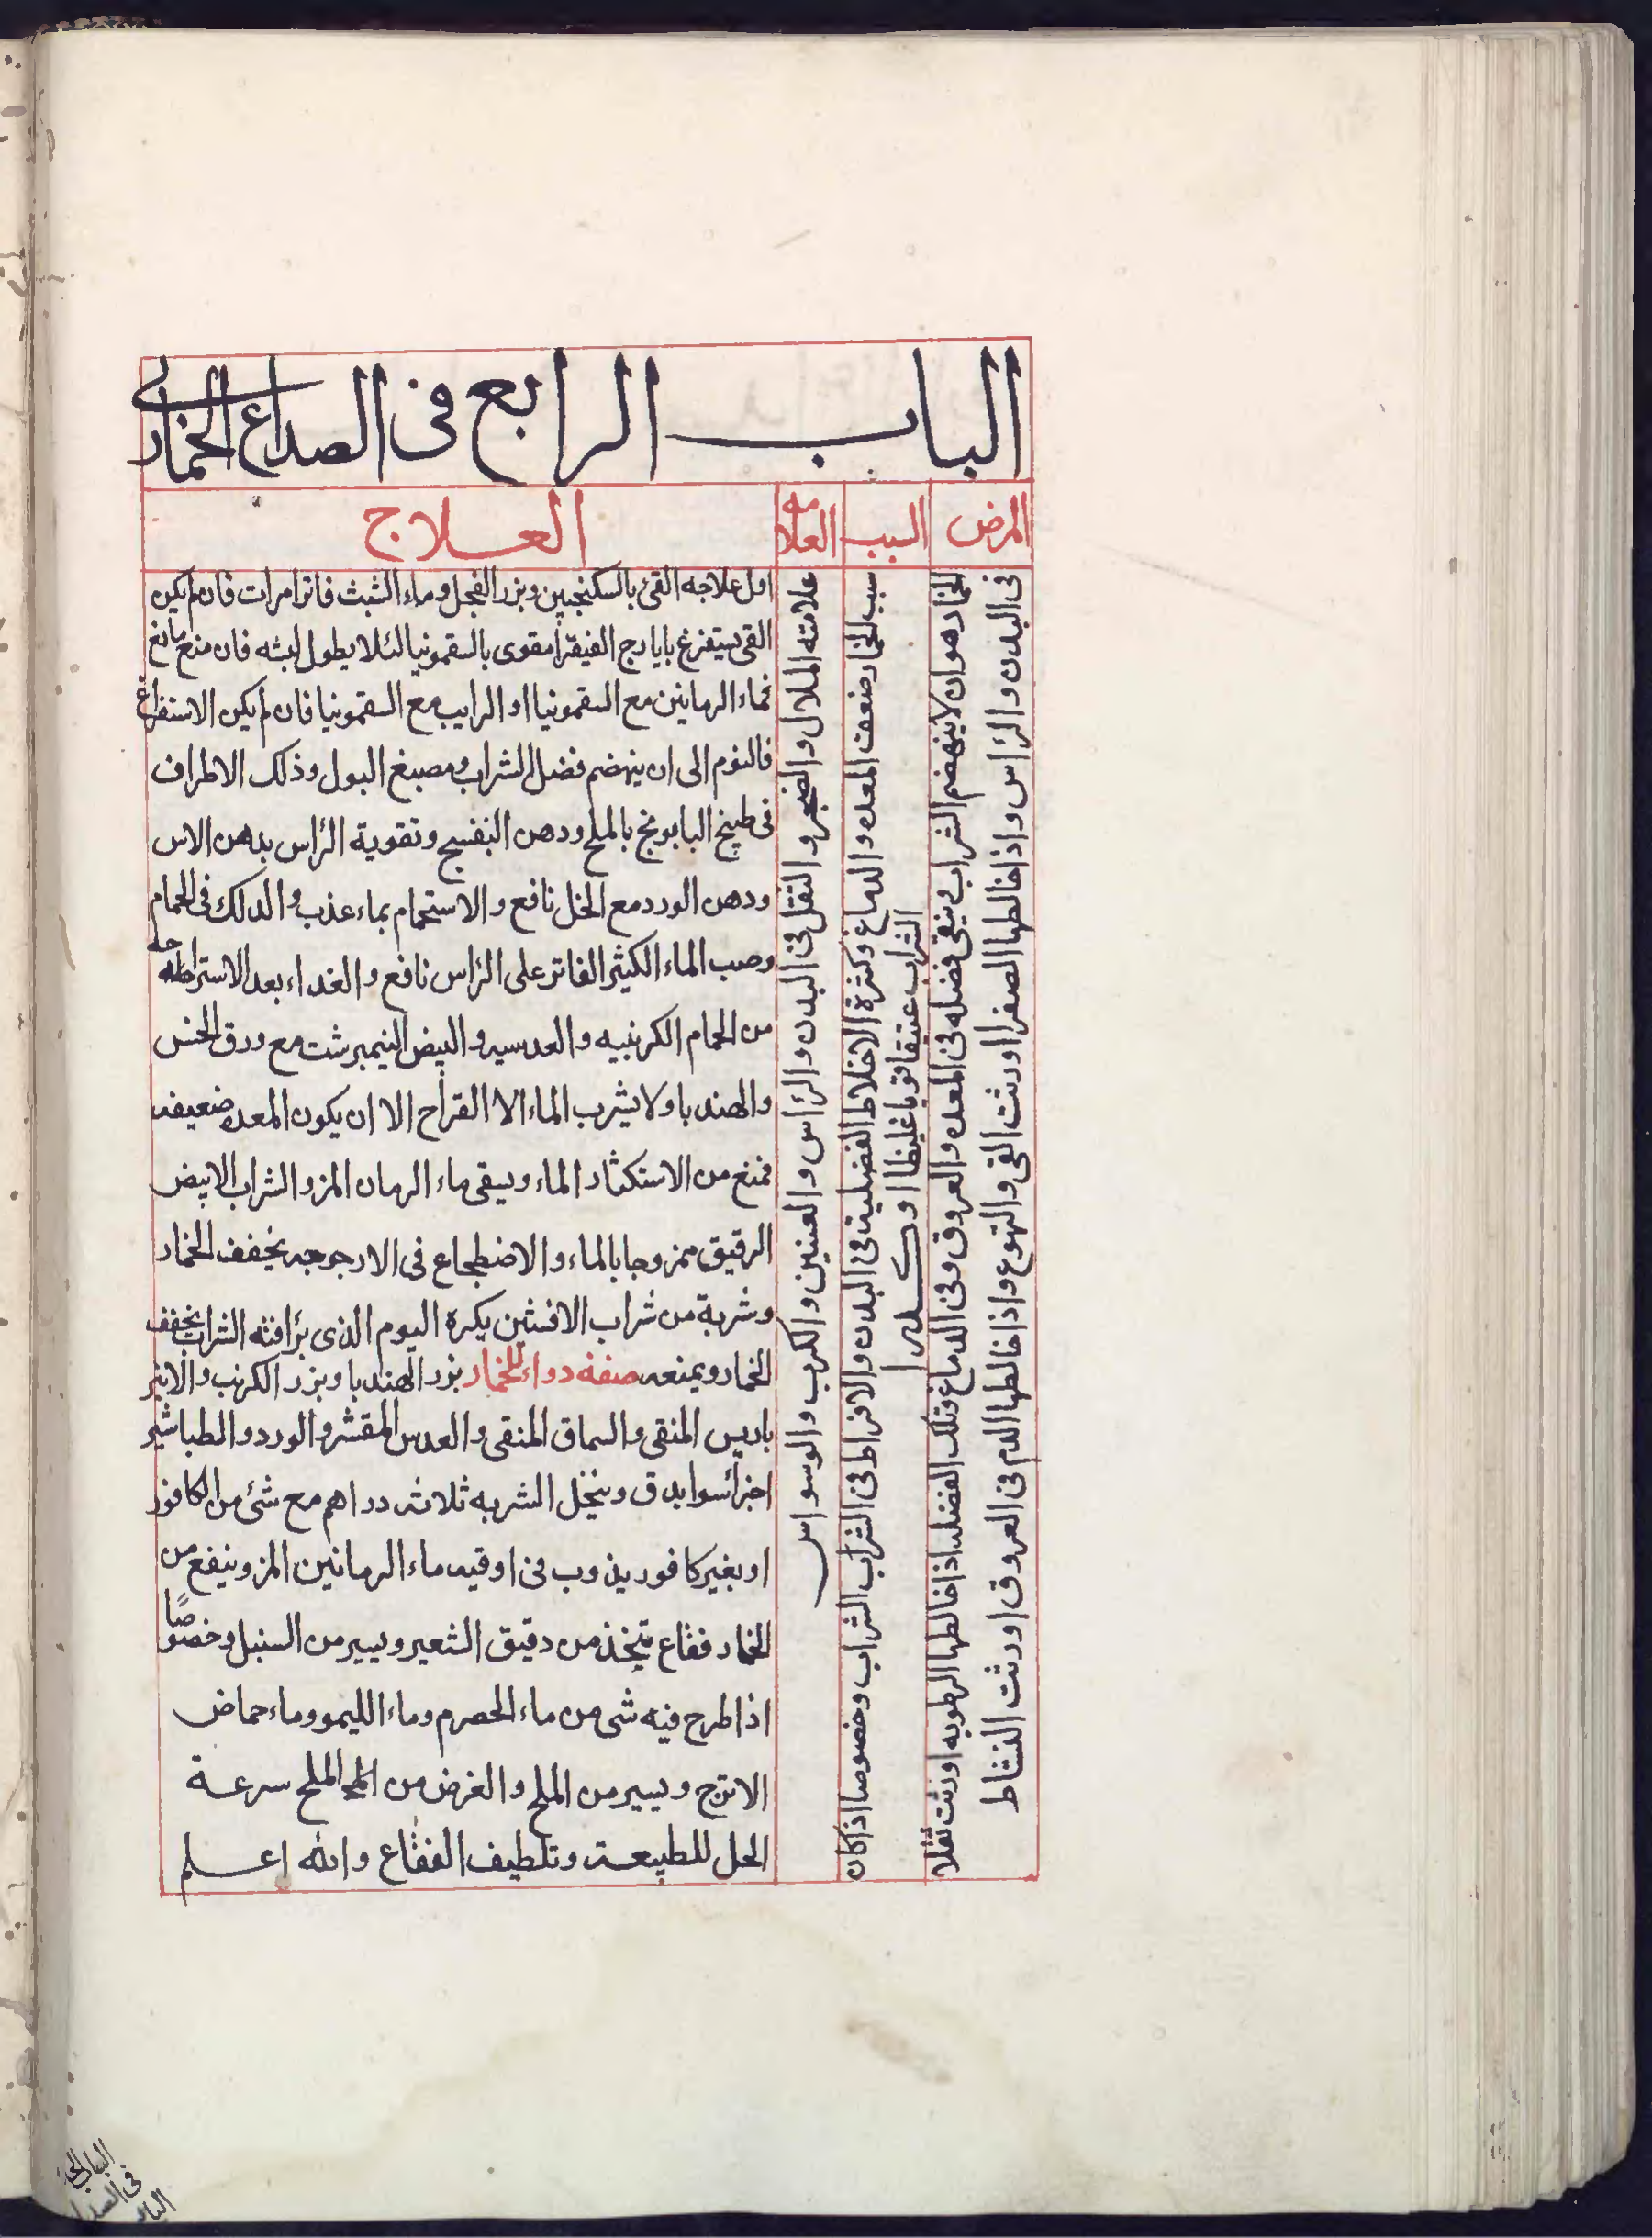 الباب الرابع فى الصداع الخمارى
المرض
السبب
العلامه
العلاج
الخمار هو ان لا ينهضم الشراب ويبقى فضله فى المعده والعروق وفى الدماغ وتلك الفضله اذا خالطها الرطوبه اورثت ثقلا
فى البدن والرأس واذا خالطها الصفرا اورثت القى والتهوع واذا خالطها الدم فى العروق اورثت النشاط
سبب الخمار ضعف المعده والدماغ وكثرة الاخلاط الفضلية فى البدن والافراط فى الشراب الشراب وخصوصا اذا كان
الشراب عتيقا قويا غليظا او كدرا
علامته الملال والضجر والثقل فى البدن والرأس والعينين والكرب والوسواس
اول علاجه القئ بالسكنجبين وبزر الفجل وماء الشبث فاترا مرات فان لم يكن
القى يستفرغ بايارج الفيقرا مقوى بالسقمونيا لئلا يطول لبثه فان منع مانع
فماء الرمانين مع السقمونيا او الرايب مع السقمونيا فان لم يكن الاستفراغ
فالنوم الى ان ينهضم فضل الشراب ومصبغ البول وذلك الاطراف
فى طبيخ البابونج بالملح ودهن البنفسج وتقوية الرأس بدهن الاس
ودهن الورد مع الخل نافع والاستحمام بماء عذب والدلك فى الحمام
وصب الماء الكثير الفاتر على الرأس نافع والغداء بعد الاستراحه
من الحمام الكرنبيه والعدسيه والبيض النيمبرشت مع ورق الخس
والهندبا ولا يشرب الماء الا القراح الا ان يكون المعده ضعيفه
فمنع من الاستكثار الماء ويسقى ماء الرمان المز والشراب الابيض
الرقيق ممزوجا بالماء والاضطجاع فى الارجوحه يخفف الخمار
وشربة من شراب الافسنتين بكرة اليوم الذى يرافته الشراب يخفف
الخمار ويمنعه صفة دواء للخمار بزر الهندبا وبزر الكرنب والانبر
باريس المنقى والسماق المنقى والعدس المقشر والورد والطباشير
اجزأ سوا يدق وينخل الشربه ثلاثه دراهم مع شئ من الكافور
او بغير كافور يذوب فى اوقيه ماء الرمانين المز وينفع من
الخمار فقاع يتخذ من دقيق الشعير ويسير من السنبل وخصوصًا
اذا طرح فيه شى من ماء الحصرم وماء الليمو وماء حماض
الاترج ويسير من الملح والغرض من الملح سرعة
الحل للطبيعة وتلطيف الفقاع والله اعلم